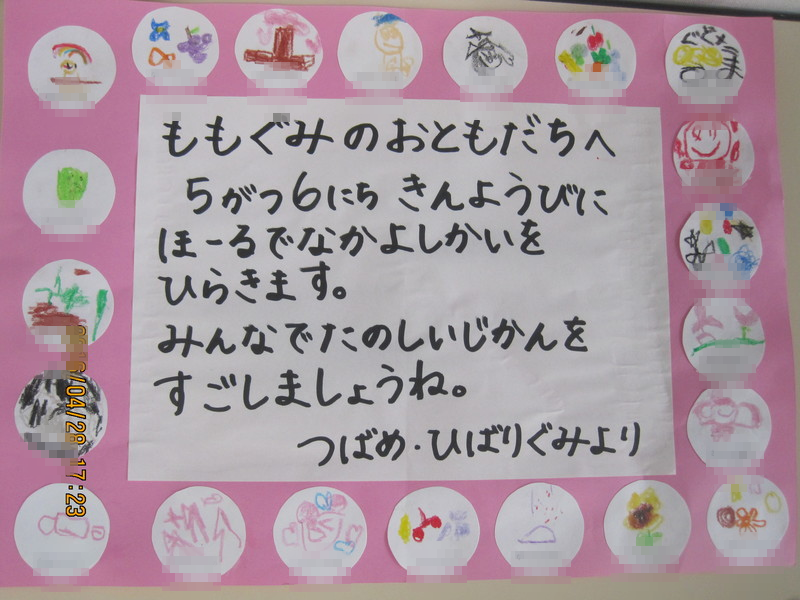 ももぐみのおともだちへ
5がつ6にち きんようびに
ほーるでなかよしかいを
ひらきます。
みんなでたのしいじかんを
すごしましょうね。
つばめ・ひばりぐみより